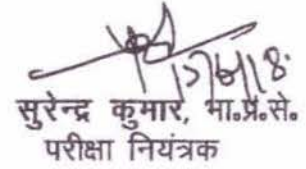 सुरेन्द्र कुमार, भा.प्र.से.
परीक्षा नियंत्रक